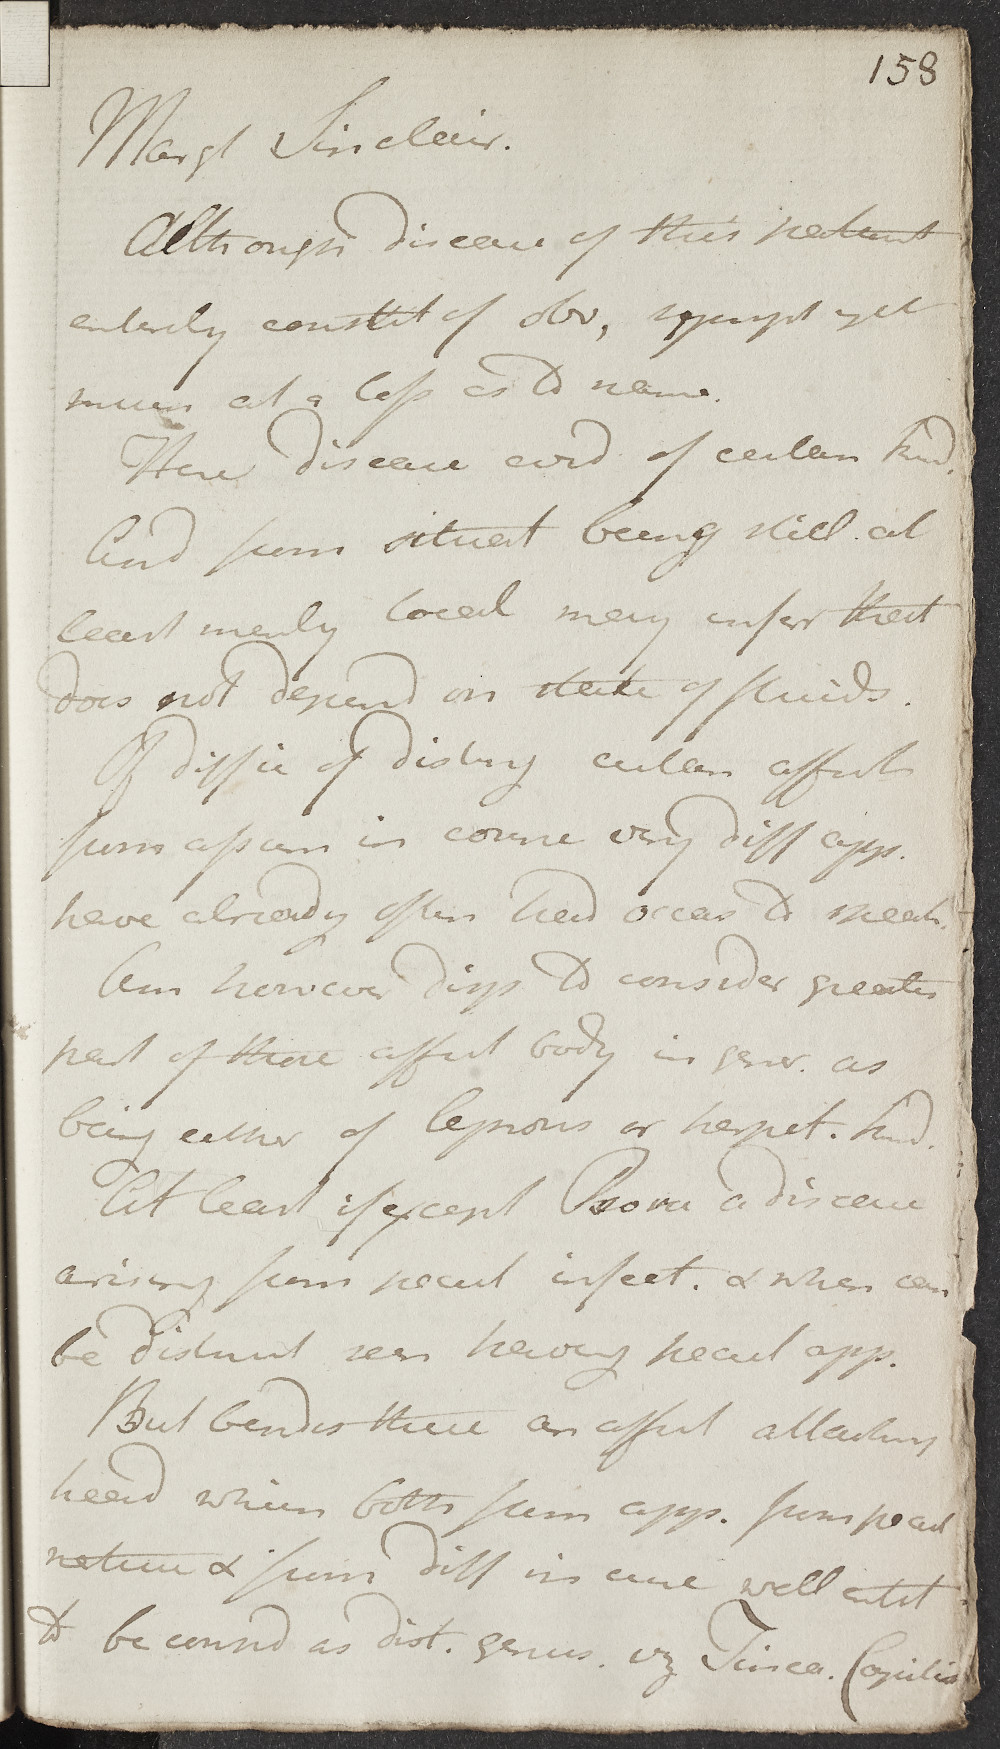 158
Margt Sinclair.
Although disease of this patient
entirely constit of obv, sympt yet
much at a loss as to name.
Here disease evid of cutan kind,
And from situat being still at
least merely local may infer that
does not depend on state of fluids.
Of diffic of disting cutan affect
from assum in course very diff app.
have already often had occas to speak.
Am however disps to consider greater
part of those affect body in gener. as
being either of leprous or herpet. kind.
At least if except Psora a disease
arising from pecul infect. & when can
be distinct seen having pecul app.
But besides these an affect attacking
head which both from app. from pecul
nature & from diff in cure well entit
to be consd as dist. genus. viz Tinea. Capitis